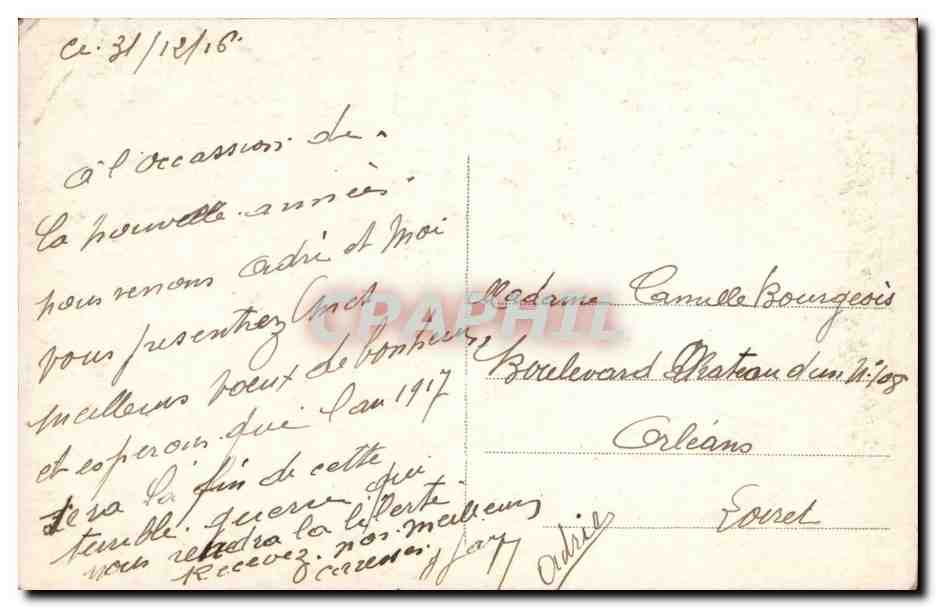 Ce. 31/12/16.
à l'occassion de
la nouvelle année
nous venons Adri et Moi
vous presentrez
meilleurs voeux de bonheur
et esperons que l'an 1917
sera la fin de cette
terrible guerre qui
nous rendra la liberté
Recevez nos meilleurs
caresses
Adrie
Madame Camille Bourgeois
Boulevard Chateaudun N° 108
Orléans
Loiret
CPAPHIL